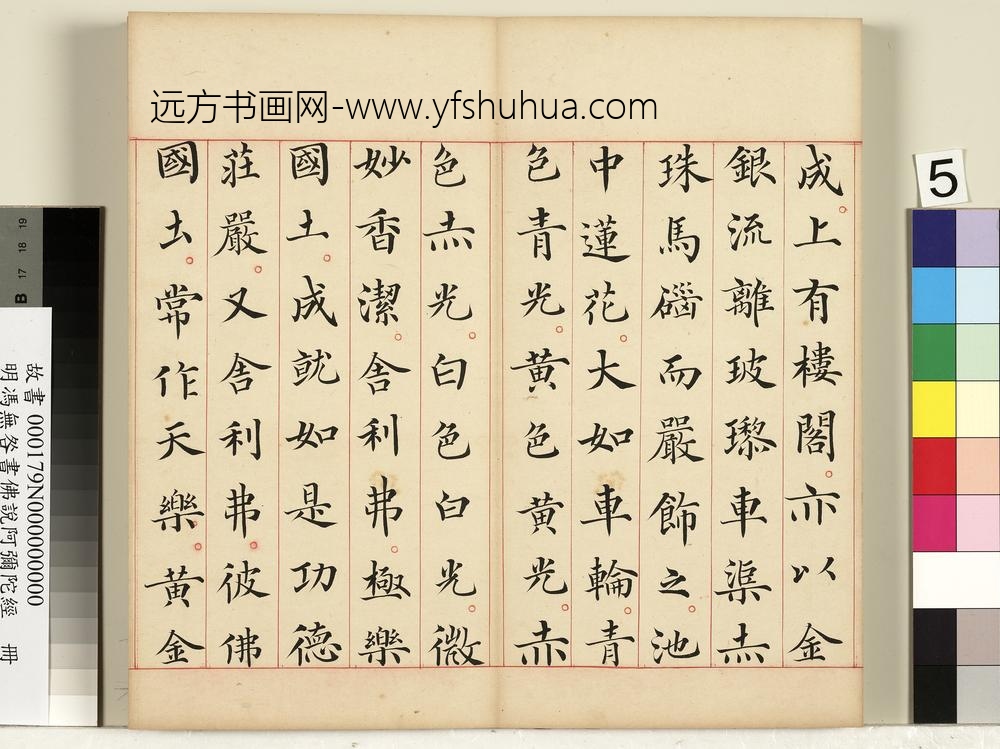 远方书画网-www.yfshuhua.com
成上有樓閣亦以金
銀流離玻瓈車渠赤
珠馬碯而嚴飾之池
中蓮花大如車輪青
色青光黄色黄光赤
色赤光白色白光微
妙香潔舍利弗極樂
國土成就如是功德
莊嚴又舍利弗彼佛
國土常作天樂黄金
5
19
18
17
B
故書 000179N000000000
明馮無咎書佛說阿彌陀經 冊